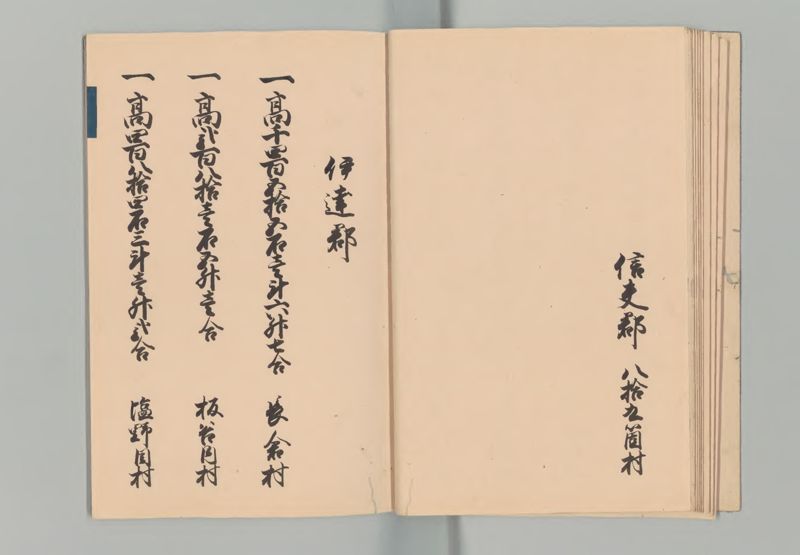 信夫郡　八拾五箇村
伊達郡
一高千四百五拾五石壱斗六升七合　長倉村
一高弐百八拾壱石五升壱合　板谷内村
一高四百八拾四石三斗壱升弐合　塩野目村